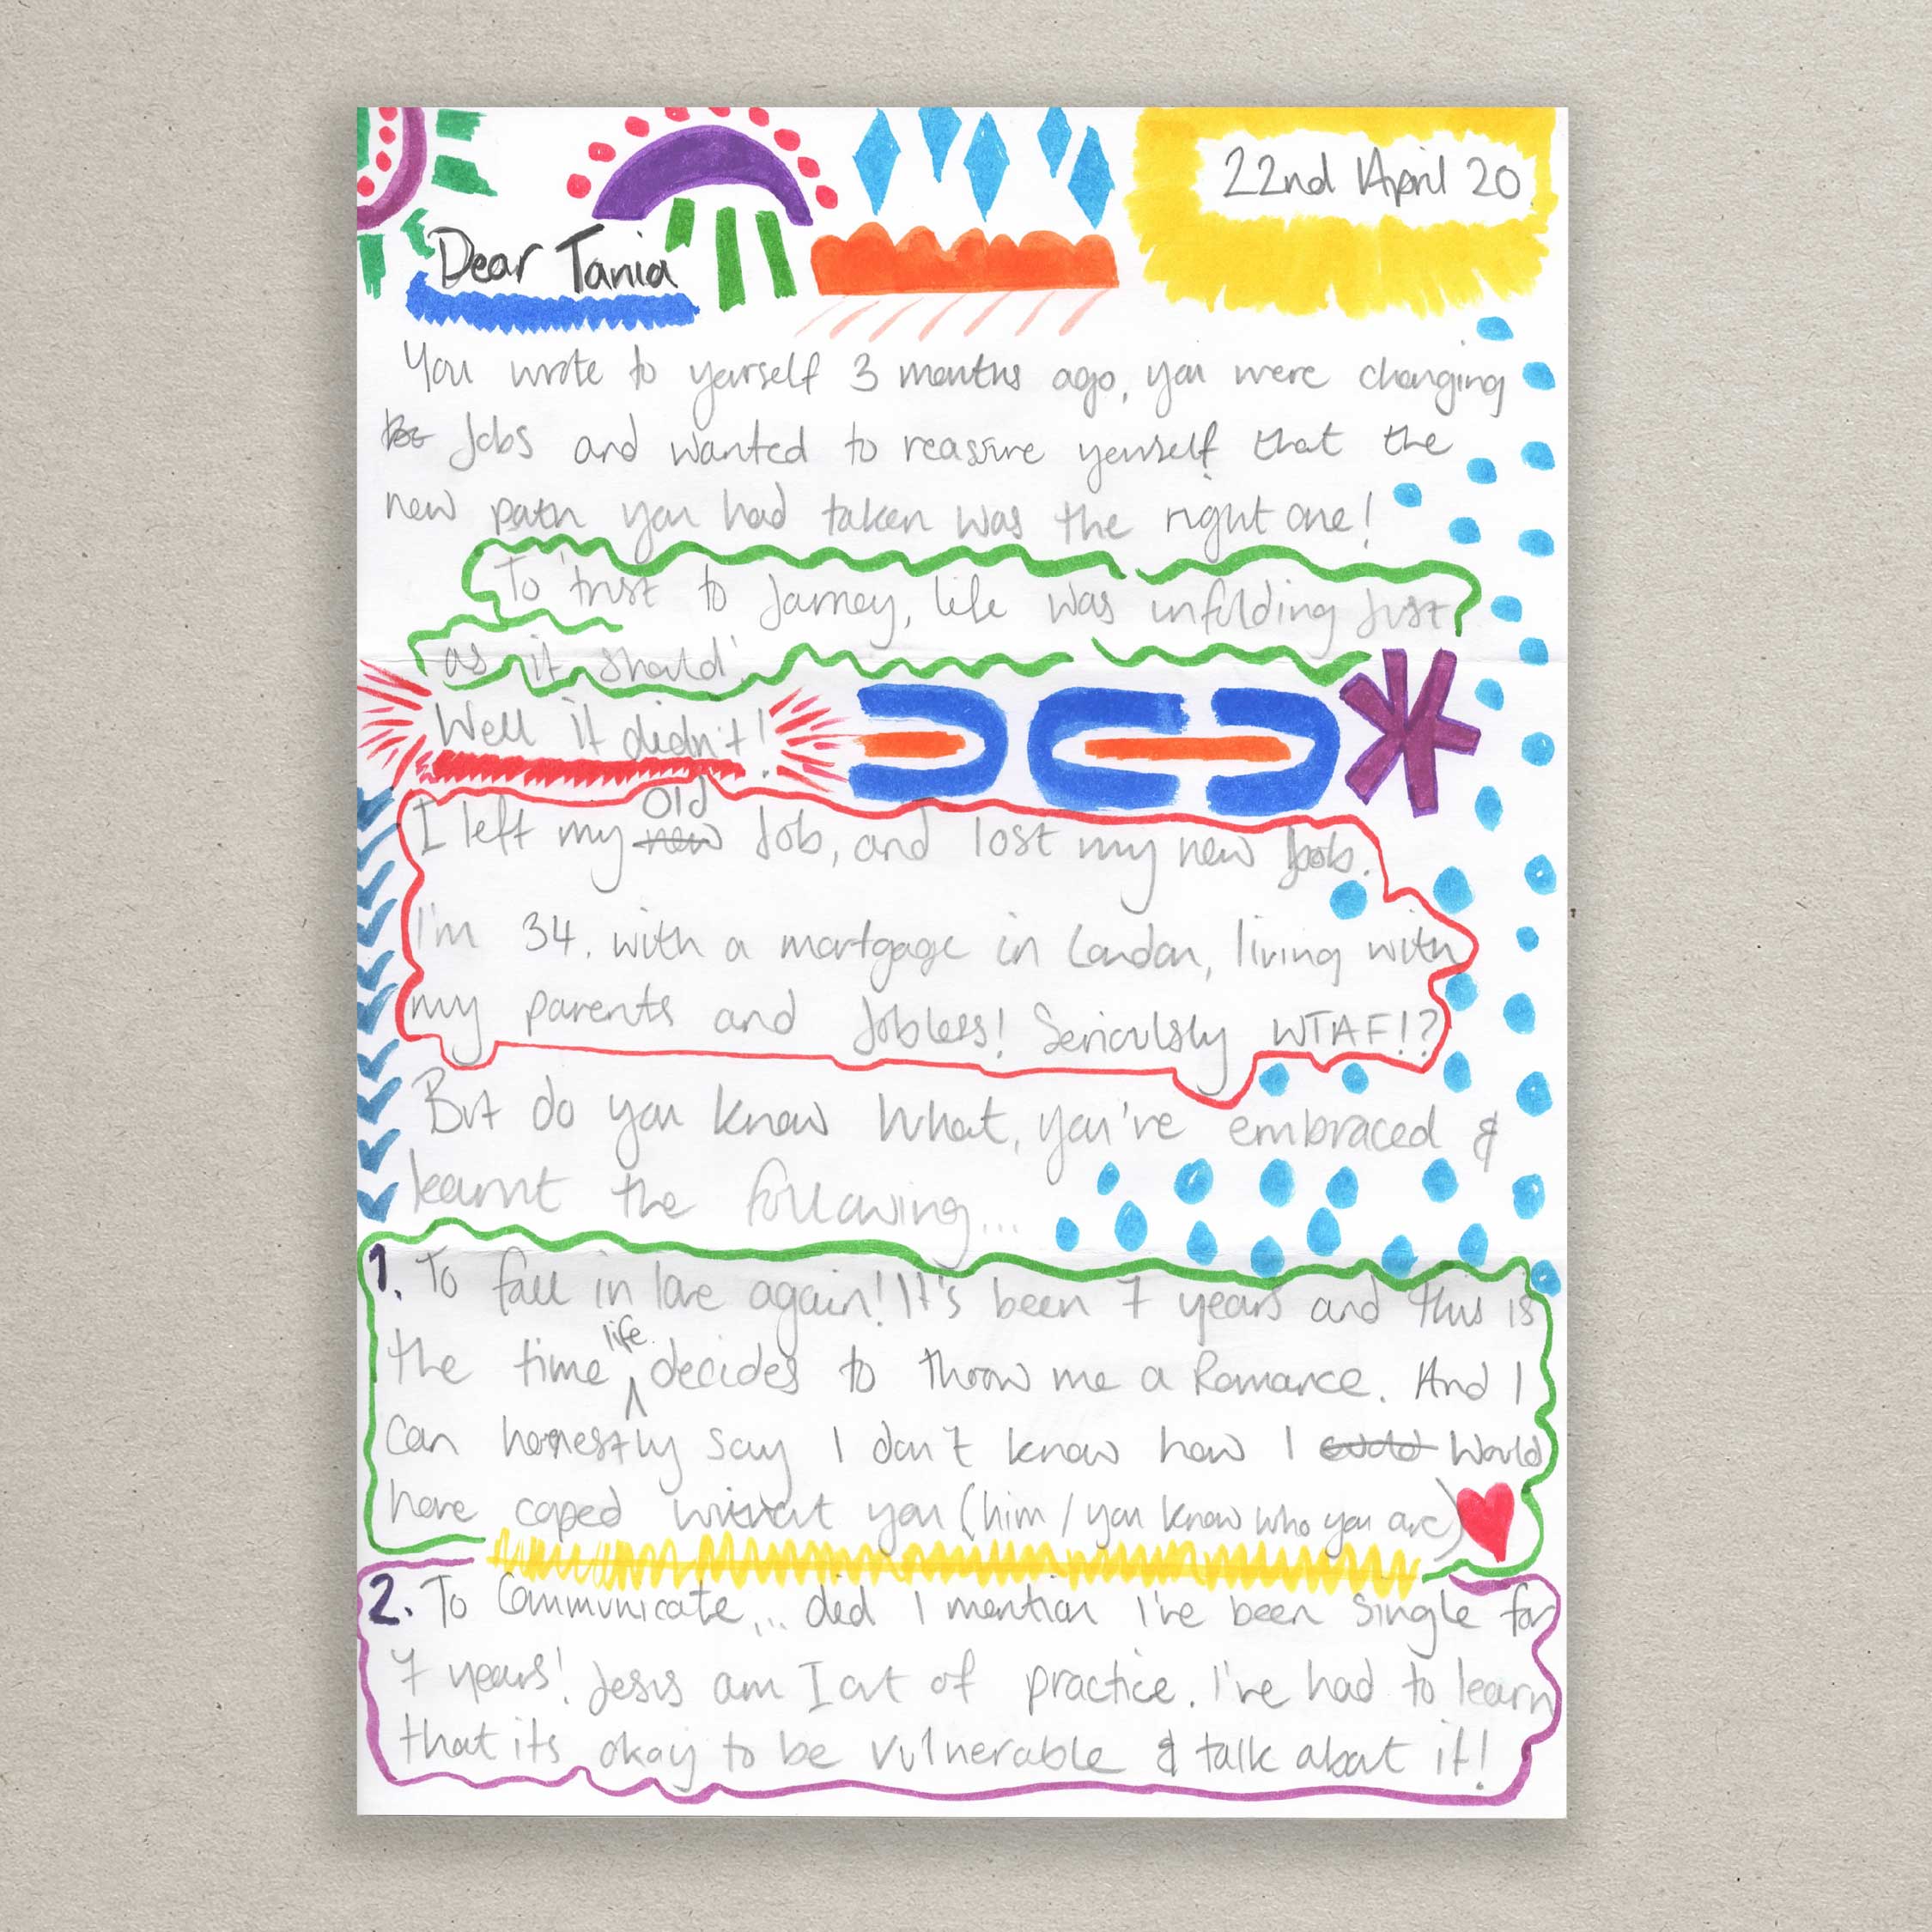 22nd April 20
Dear Tania
You wrote to yourself 3 months ago, you were changing
Jobs and wanted to reassure yourself that the
new path you had taken was the right one!
'To trust to Jorney, life was unfolding Just
as it should'
Well it didn't!
I left my new Old Job, and lost my new Job.
I'm 34. with a mortgage in London, living with
my parents and Jobless! Serioulsly WTAF!?
But do you know What, you've embraced &
learnt the following...
1. To fall in love again! It's been 7 years and this is
the time life decides to throw me a Romance. And I
can honestly say I don't know how I could Would
have coped without you (him / you know who you are)
2. To Communicate... did I mention I've been single for
7 years! Jesus am I out of practice. I've had to learn
that its okay to be vulnerable & talk about it!